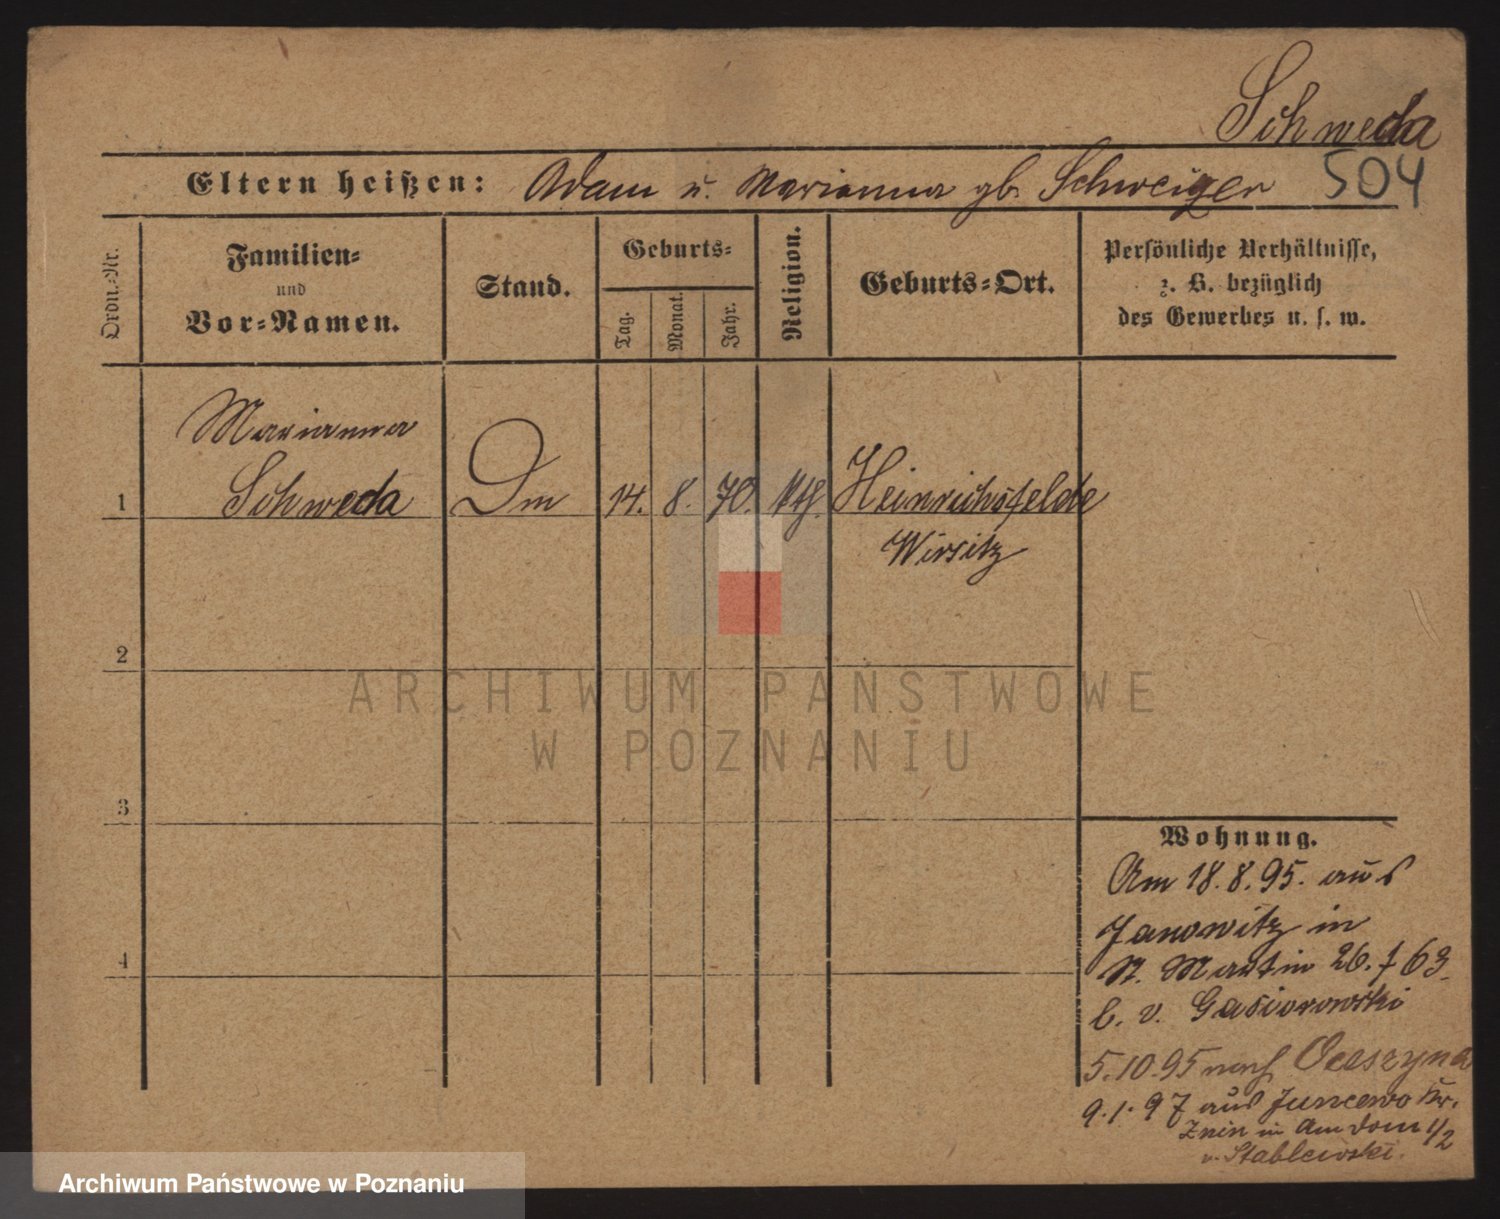 Schweda
504
Eltern heißen: Adam u. Marianna gb. Schweiger
Ordn.-Nr.
Familien-
und
Vor-Namen.
Stand.
Geburts-
Tag.
Monat.
Jahr.
Religion.
Geburts-Ort.
Persönliche Verhältnisse,
z. B. bezüglich
des Gewerbes u. s. w.
Marianna
1 Schweda Dm 14. 8. 70. kth. Heinrichsfelde
Wirsitz
2
3
4
Wohnung.
Am 18.8.95. aus
Janowitz in
St. Martin 26. f 63.
b. v. Gasiorowski
5.10.95 nach
9.1.97 aus Juncewo Kr.
Znin in Am Dom 1/2
v. Stablewski.
ARCHIWUM PAŃSTWOWE
W POZNANIU
Archiwum Państwowe w Poznaniu